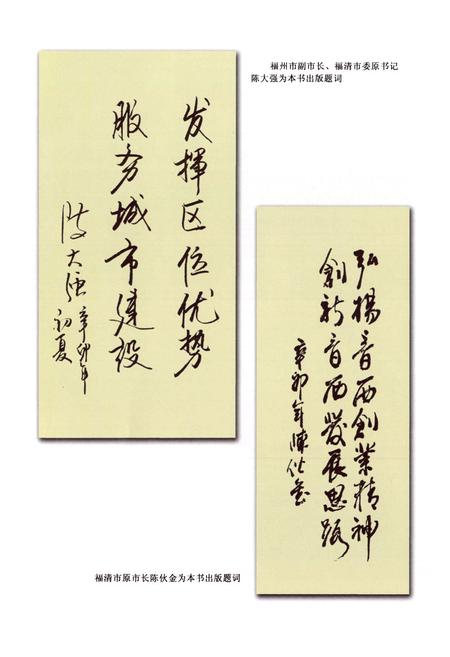 福州市副市长、福清市委原书记
陈大强为本书出版题词
发挥区位优势
服务城市建设
陈大强 辛卯年
初夏
弘揚音西創業精神
創新音西發展思路
辛卯年陳伙金
福清市原市长陈伙金为本书出版题词